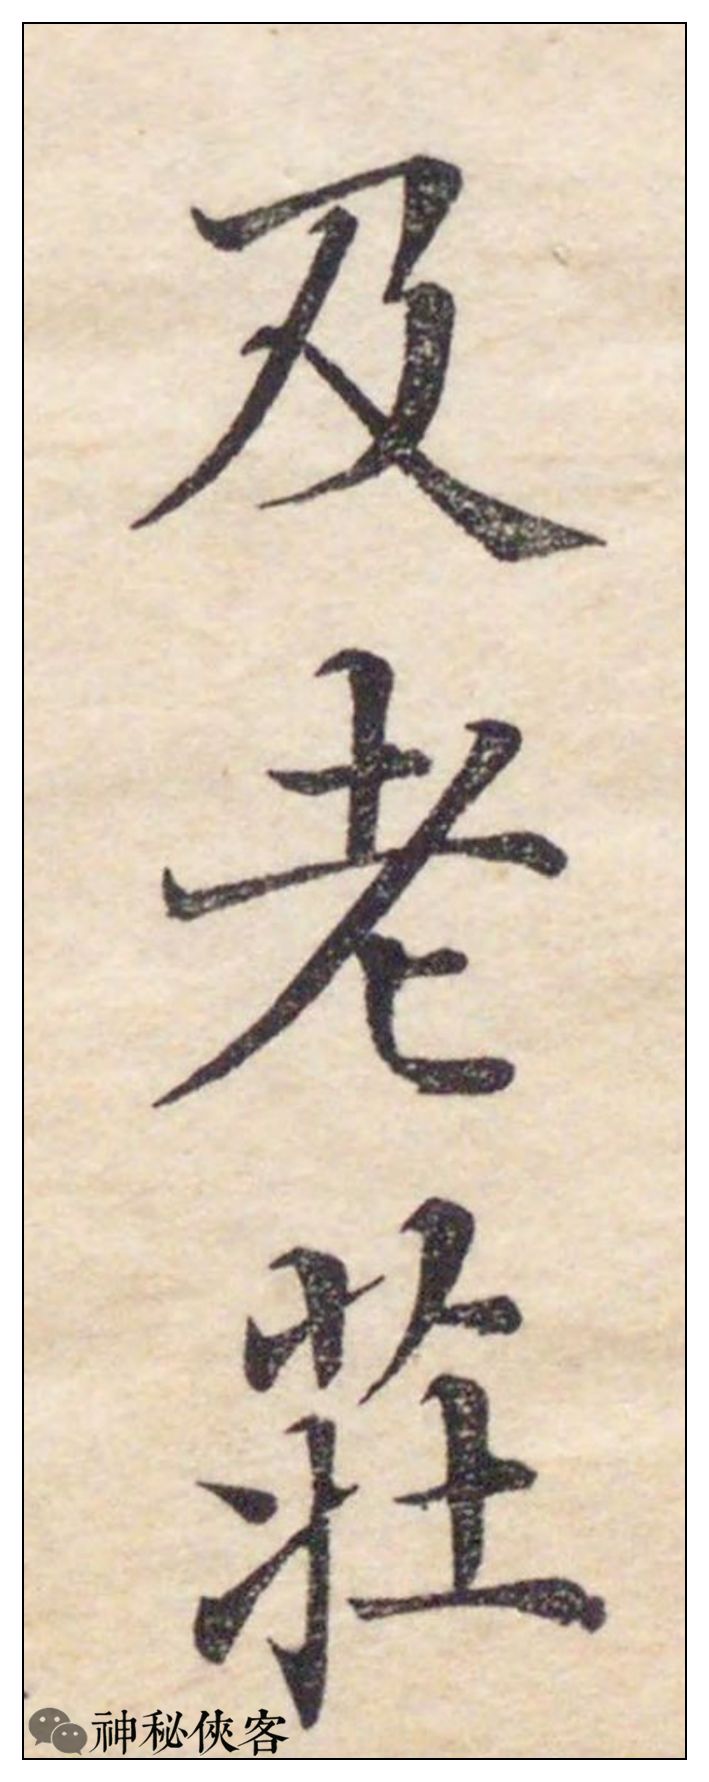 及老莊
神秘俠客